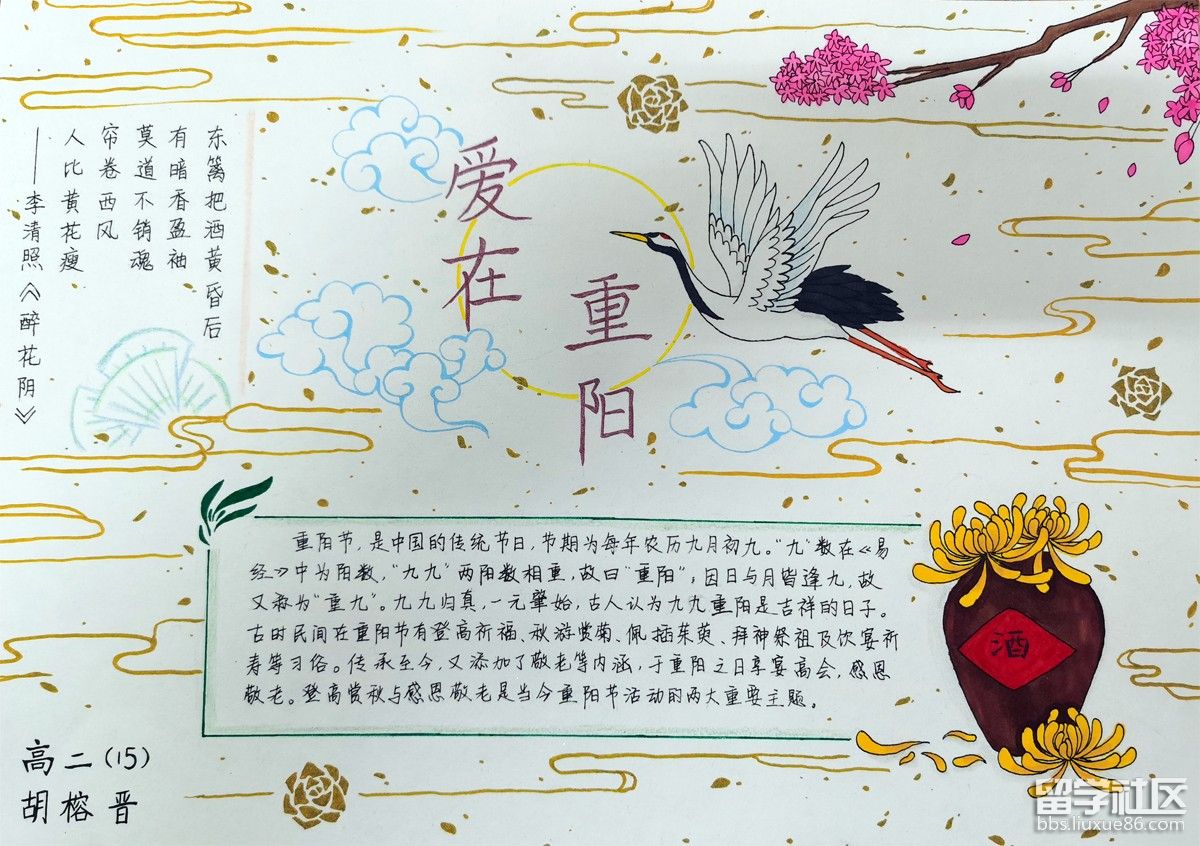 爱在
重阳
东篱把酒黄昏后
有暗香盈袖
莫道不销魂
帘卷西风
人比黄花瘦
——李清照《醉花阴》
重阳节，是中国的传统节日，节期为每年农历九月初九。“九”数在《易
经》中为阳数，“九九”两阳数相重，故曰“重阳”；因日与月皆逢九，故
又称为“重九”。九九归真，一元肇始，古人认为九九重阳是吉祥的日子。
古时民间在重阳节有登高祈福、秋游赏菊、佩插茱萸、拜神祭祖及饮宴祈
寿等习俗。传承至今，又添加了敬老等内涵，于重阳之日享宴高会，感恩
敬老。登高赏秋与感恩敬老是当今重阳节活动的两大重要主题。
酒
高二（15）
胡榕晋
留学社区
bbs.liuxue86.com